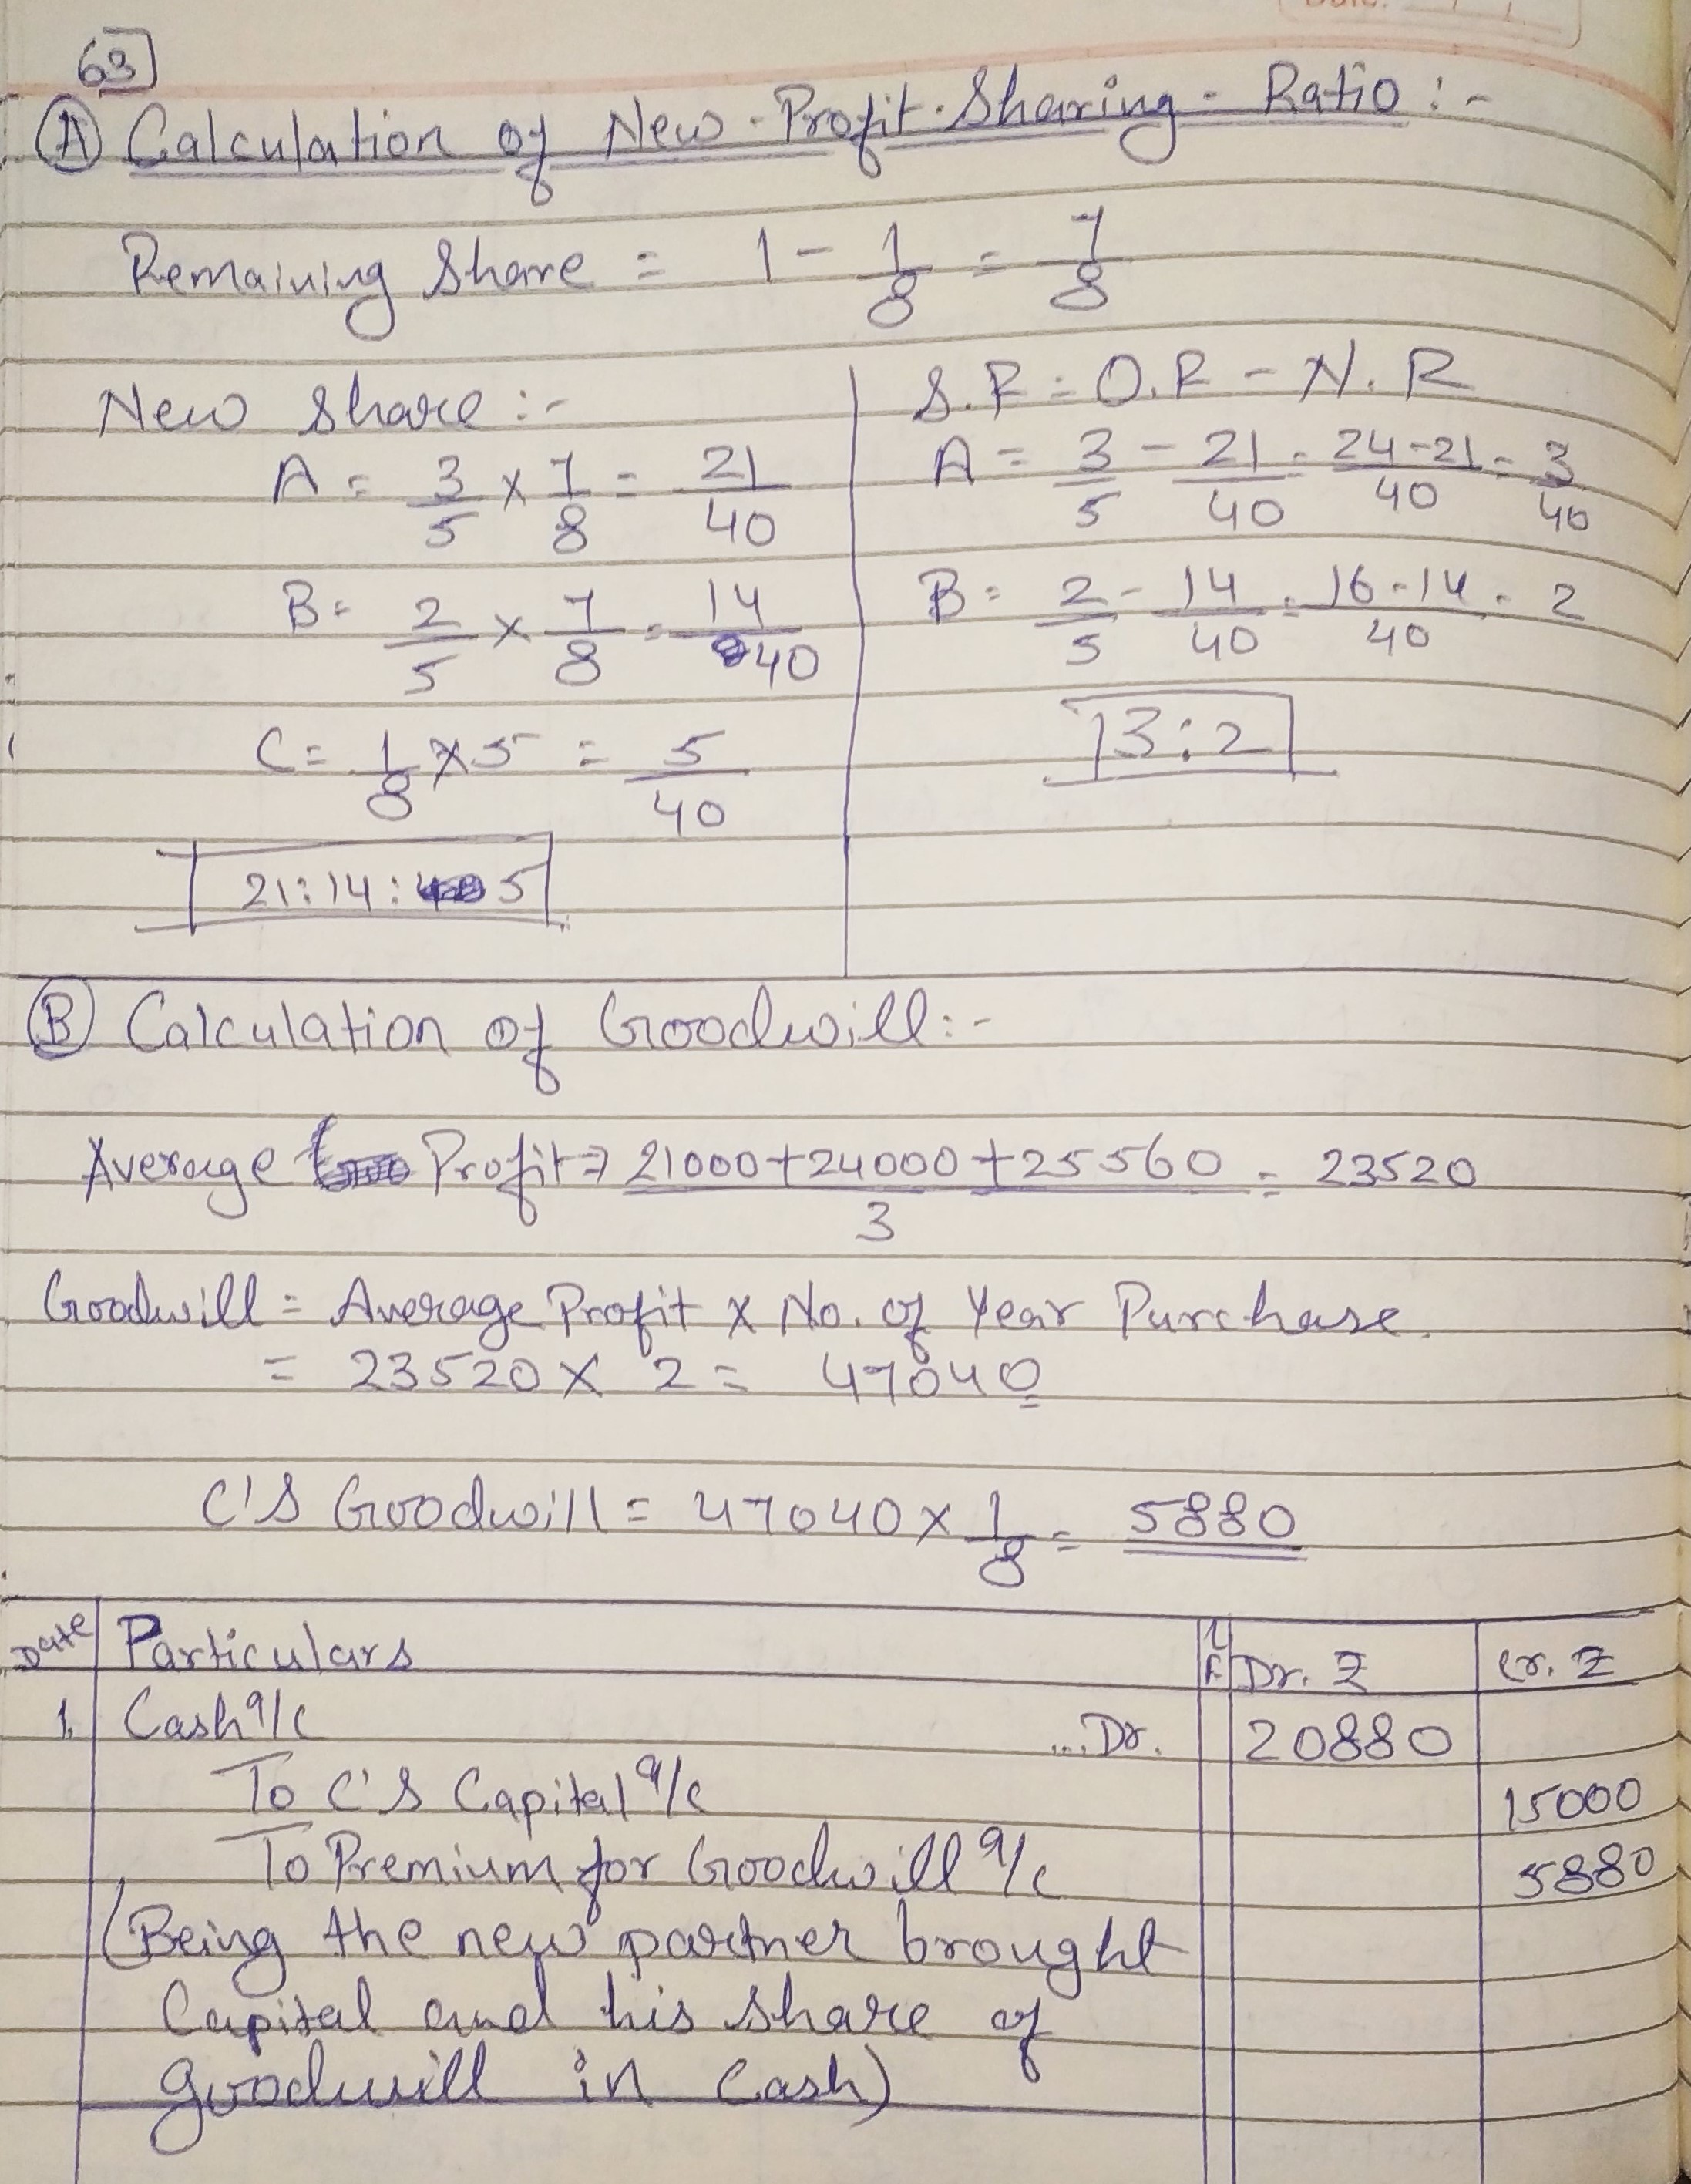 Date: / /
63
(A) Calculation of New-Profit-Sharing-Ratio:-
Remaining Share = 1 - 1/8 = 7/8
New Share:-
A = 3/5 × 7/8 = 21/40
B = 2/5 × 7/8 = 14/40
C = 1/8 × 5 = 5/40
21:14:5
S.R = O.R - N.R
A = 3/5 - 21/40 = 24-21/40 = 3/40
B = 2/5 - 14/40 = 16-14/40 = 2
3:2
(B) Calculation of Goodwill:-
Average Profit ⇒ 21000+24000+25560/3 = 23520
Goodwill = Average Profit × No. of Year Purchase.
= 23520 × 2 = 47040
C'S Goodwill = 47040 × 1/8 = 5880
Date Particulars L F Dr. ₹ Cr. ₹
1. Cash a/c ...Dr. 20880
To C'S Capital a/c 15000
To Premium for Goodwill a/c 5880
(Being the new partner brought
Capital and his share of
goodwill in Cash)